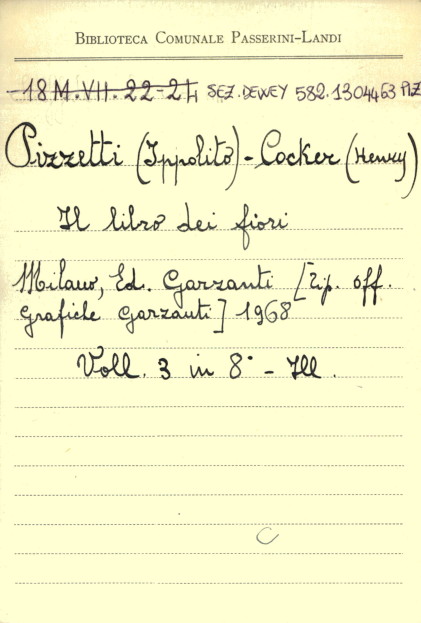 BIBLIOTECA COMUNALE PASSERINI-LANDI
18 M.VII.22-24 SEZ. DEWEY 582.1304463 PIZ
Pizzetti (Ippolito) - Cocker (Henry)
Il libro dei fiori
Milano, Ed. Garzanti [Tip. Off.
Grafiche Garzanti] 1968
Voll. 3 in 8° - Ill.
C